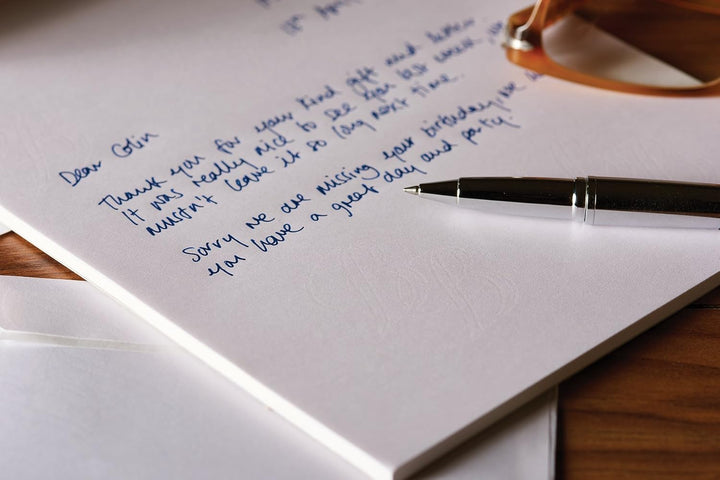 Dear Colin
Thank you for your kind gift and
It was really nice to see you last week
mustn't leave it so long next time.
Sorry we are missing your birthday, we
you have a great day and party.